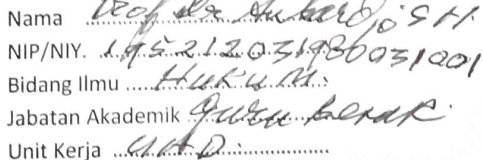 Nama Prof. Dr. Sukardjo SH.
NIP/NIY. 195212031980031001
Bidang Ilmu Hukum.
Jabatan Akademik Guru Besar.
Unit Kerja UAD.